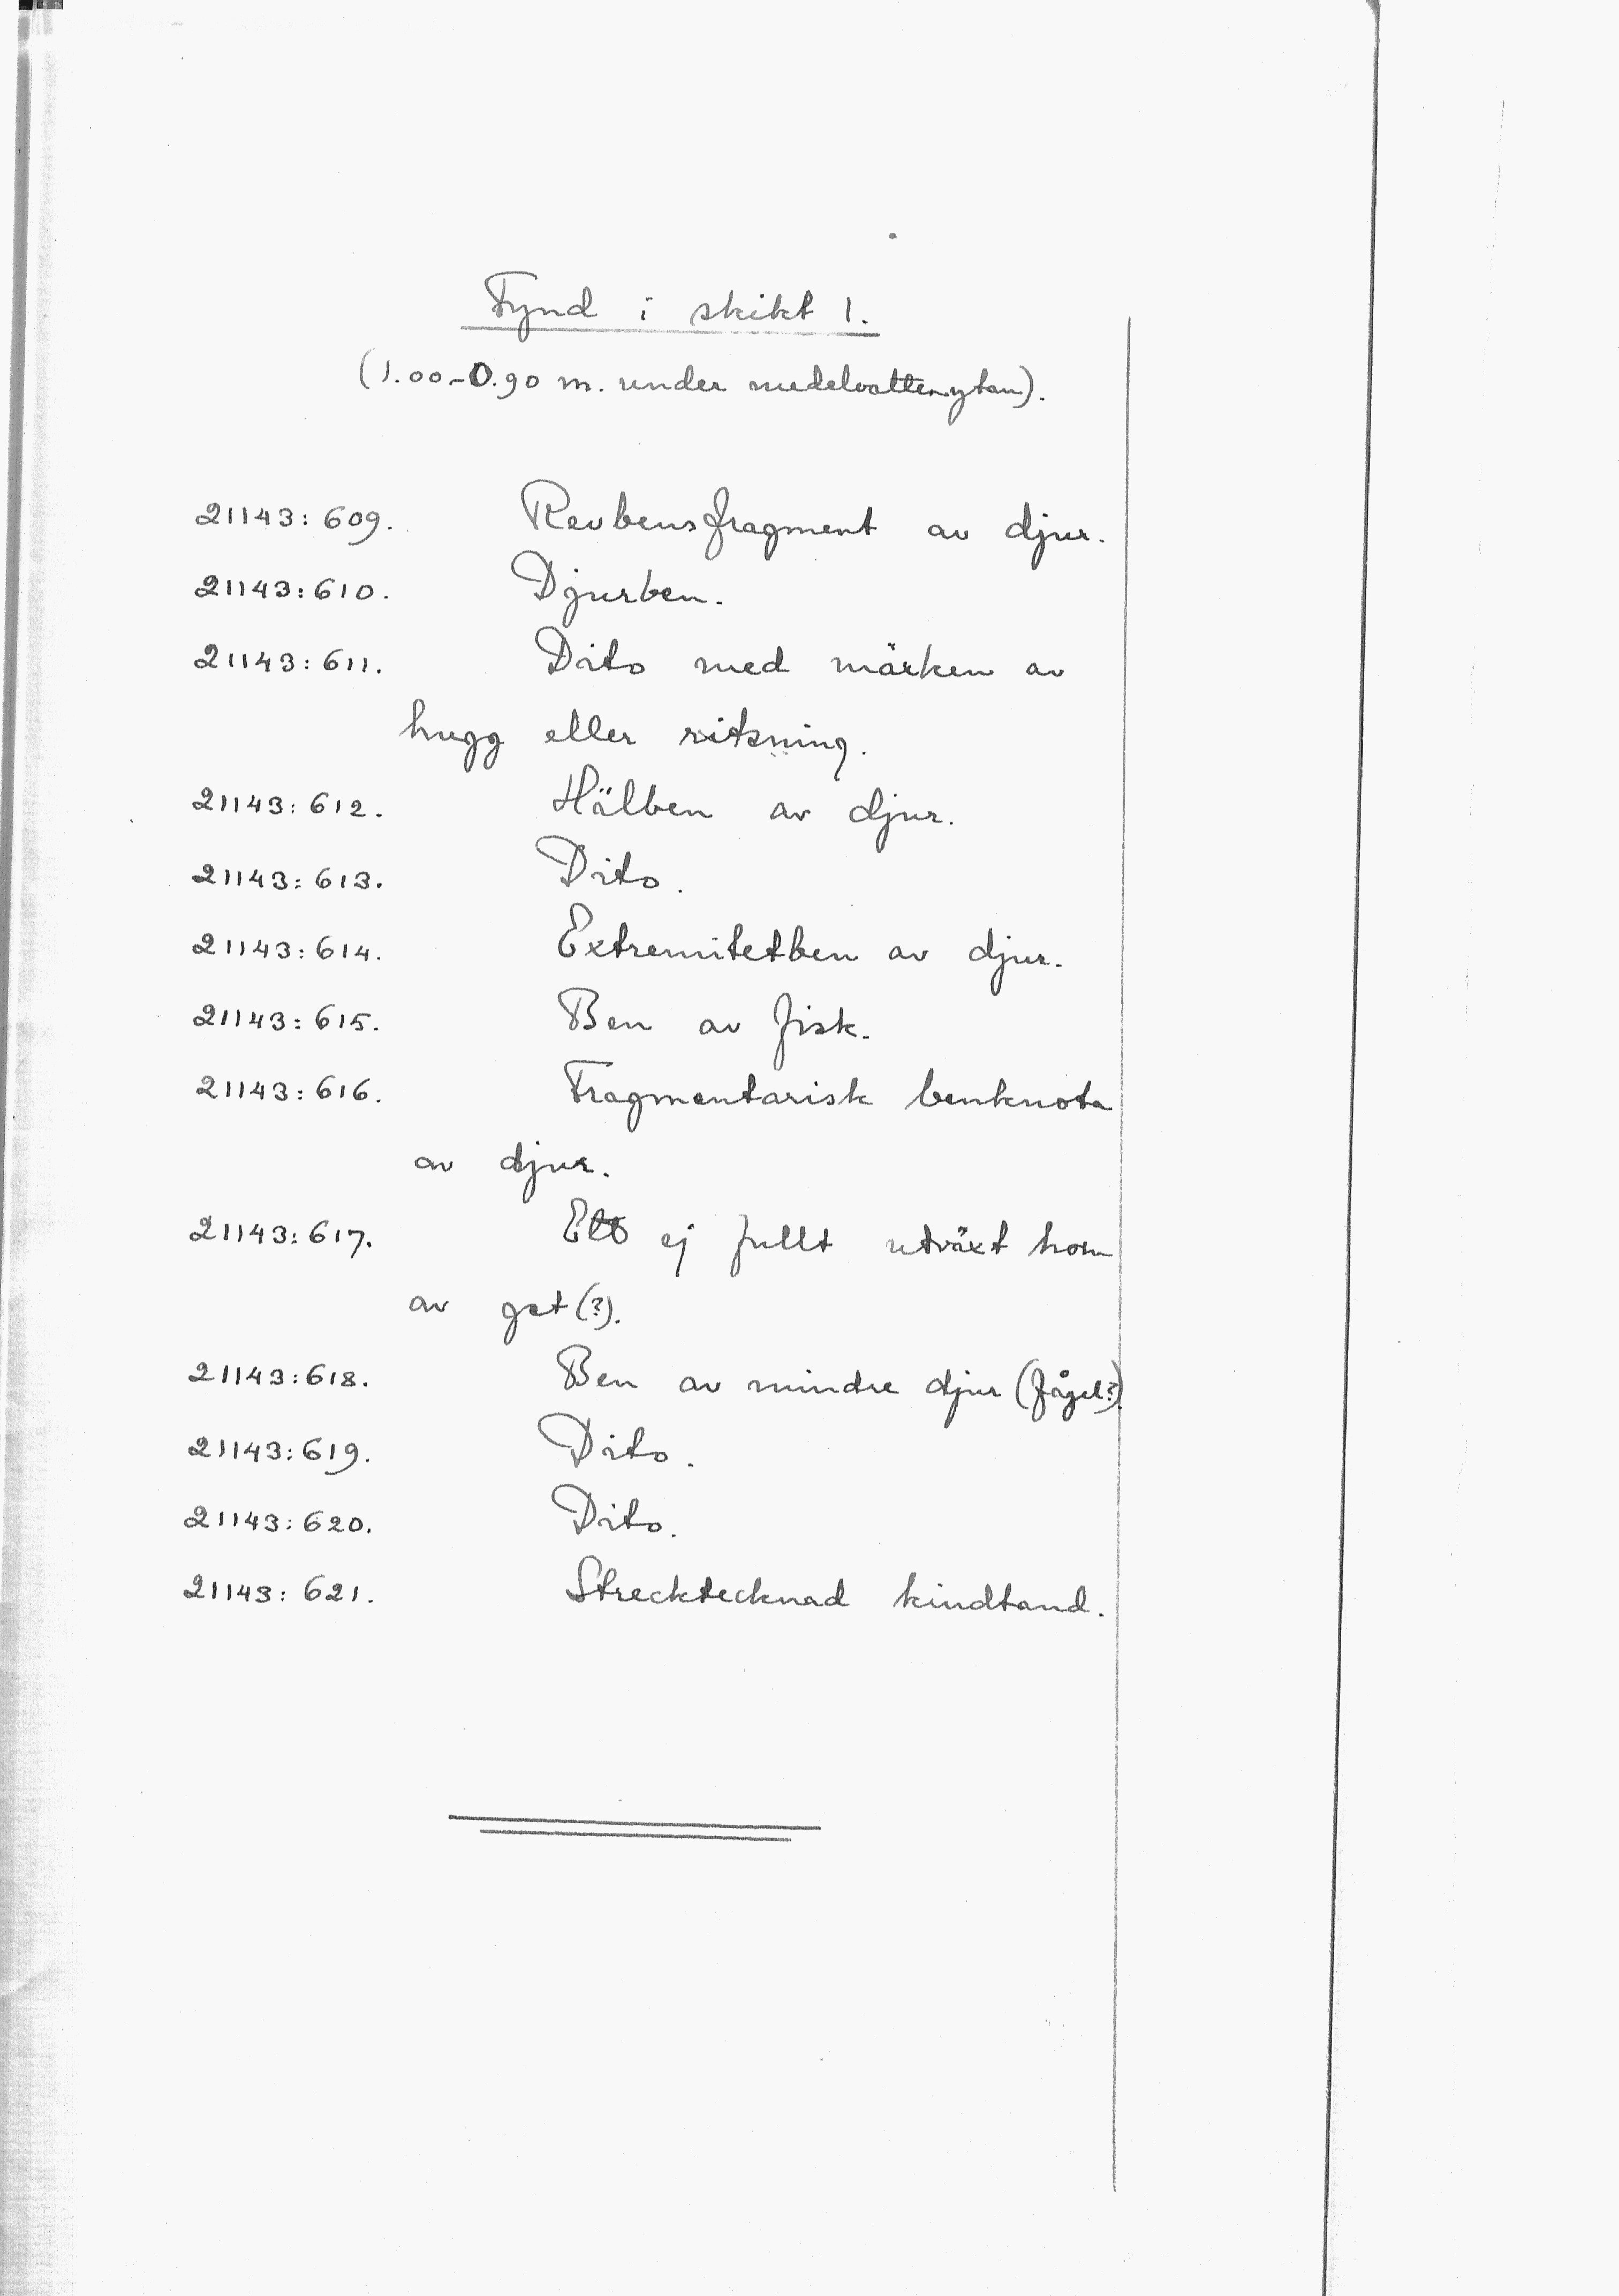 Fynd i skikt 1.
(1.00-0.90 m. under medelvattenytan).
21143:609. Revbensfragment av djur.
21143:610. Djurben.
21143:611. Dito med märken av
hugg eller ritsning.
21143:612. Hälben av djur.
21143:613. Dito.
21143:614. Extremitetben av djur.
21143:615. Ben av fisk.
21143:616. Fragmentarisk benknota
av djur.
21143:617. Ett ej fullt utväxt horn
av get(?).
21143:618. Ben av mindre djur (fågel?).
21143:619. Dito.
21143:620. Dito.
21143:621. Strecktecknad kindtand.